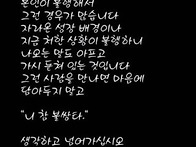 본인이 불행해서
그런 경우가 많습니다
자라온 성장 배경이나
지금 처한 상황이 불행하니
나오는 말도 아프고
가시 돋혀 있는 것입니다
그런 사람을 만나면 마음에
담아두지 말고
"니 참 불쌍타."
생각하고 넘어가십시오